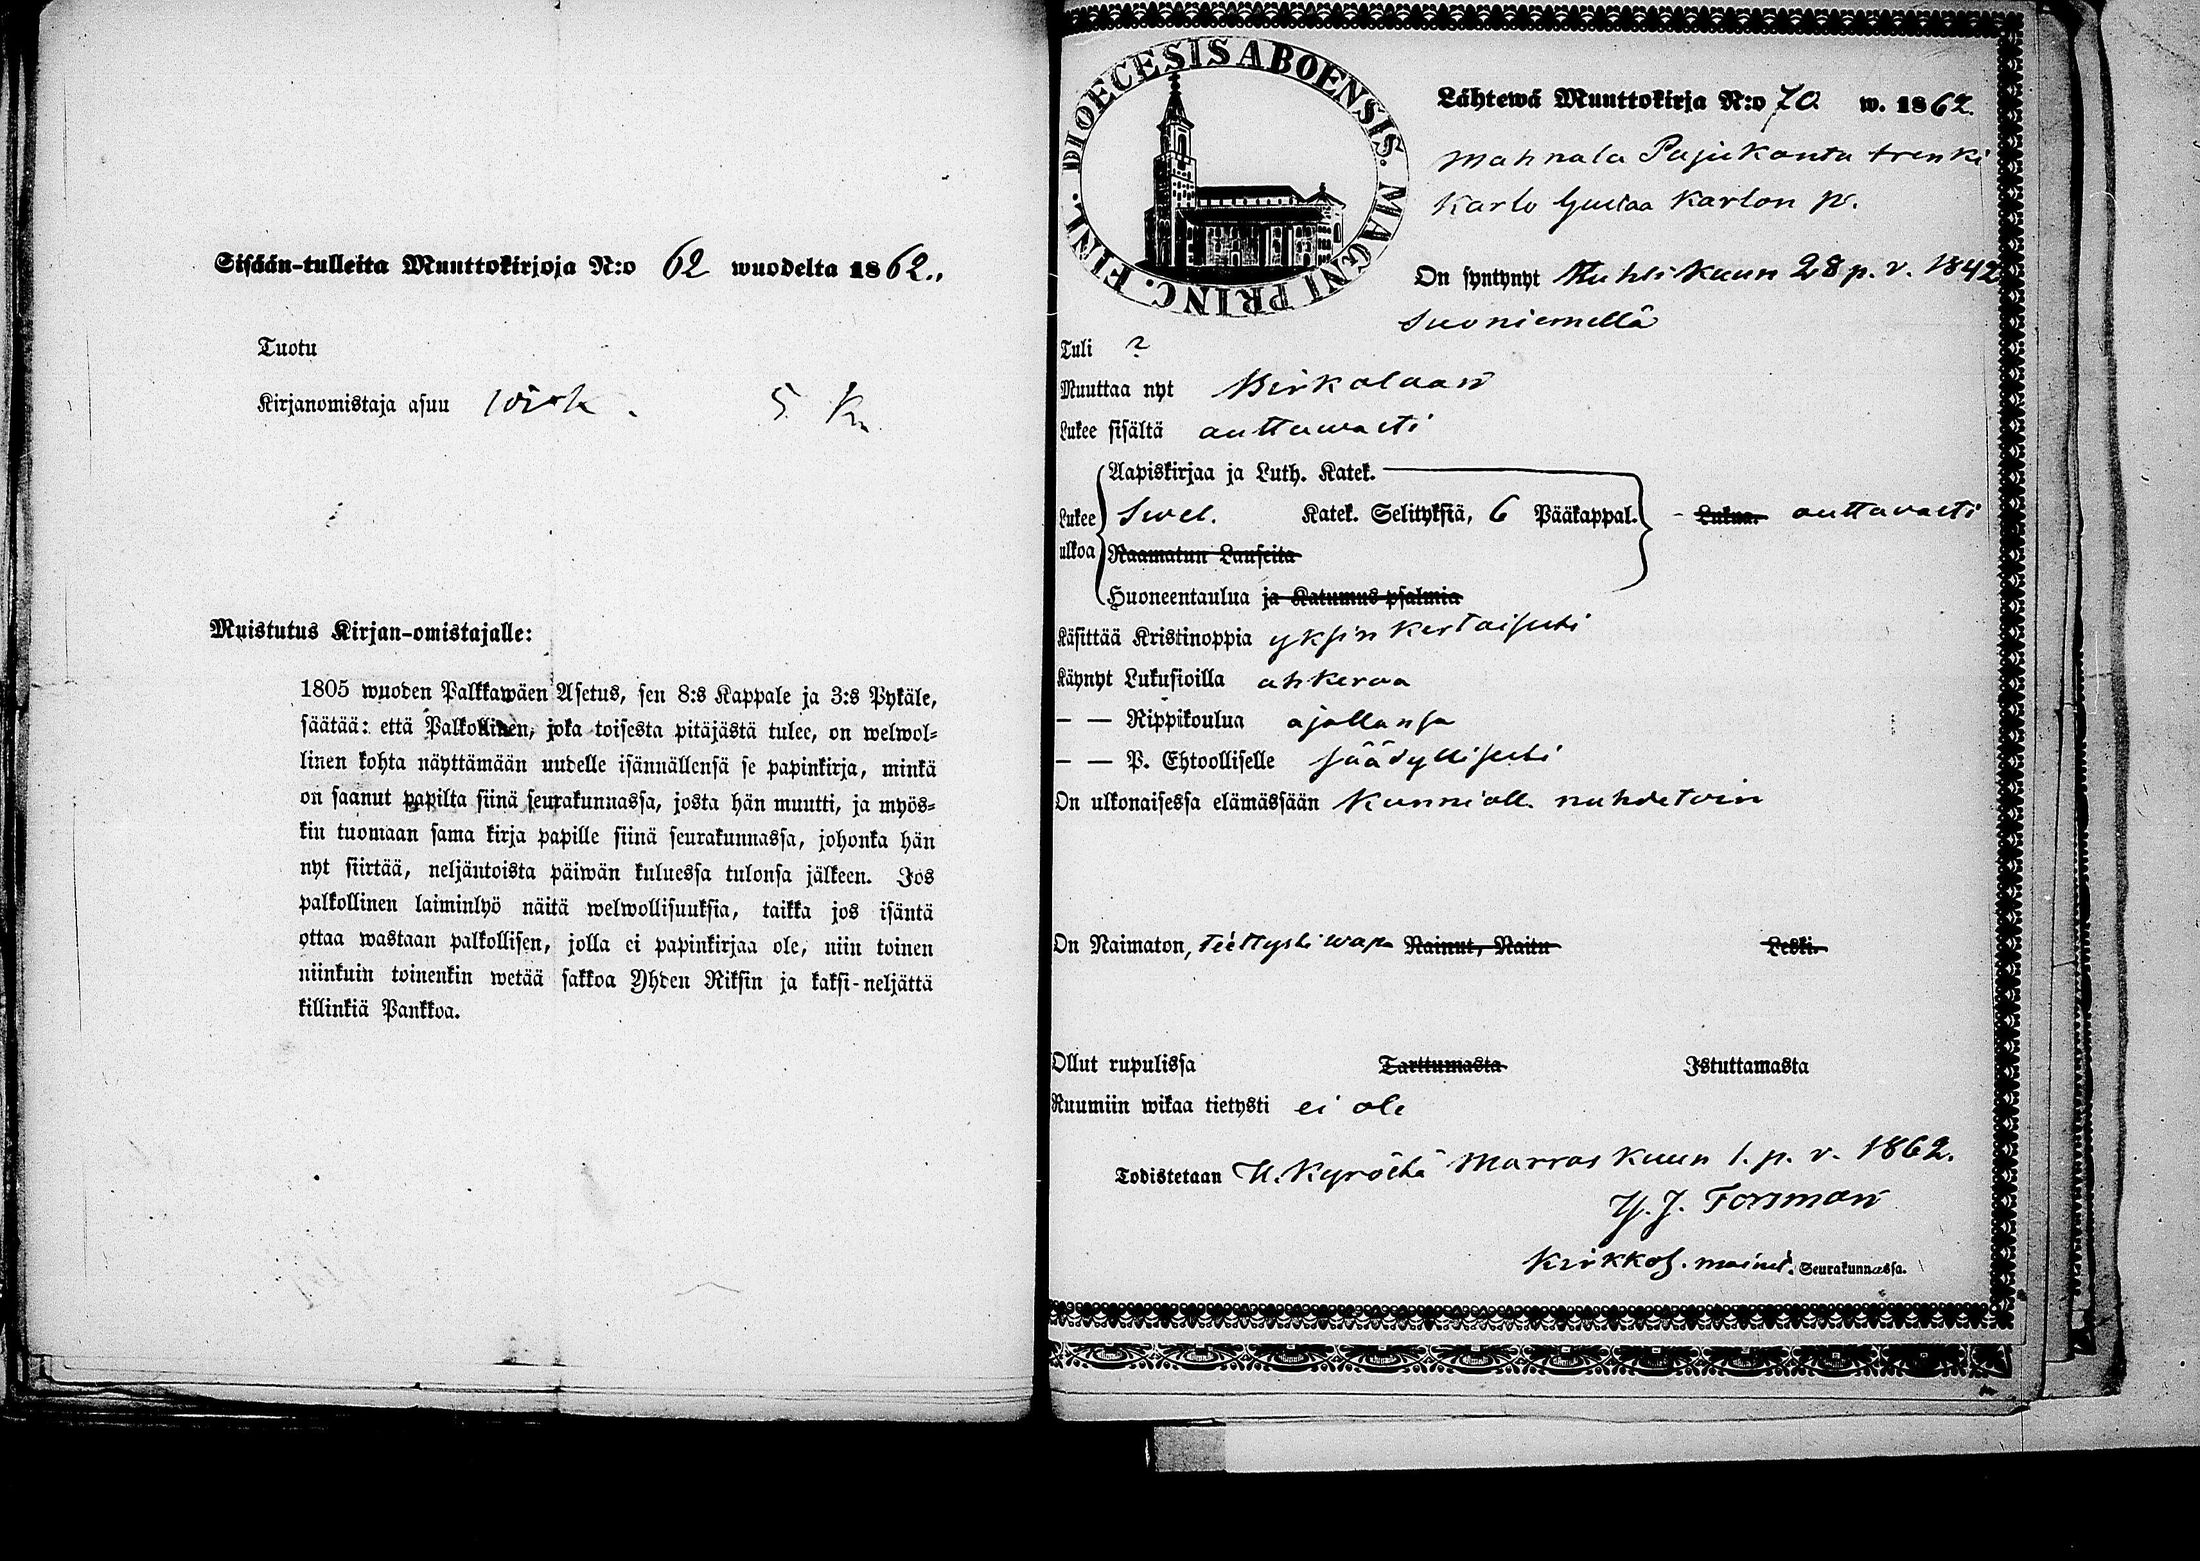 Sisään-tulleita Muuttokirjoja N:o 62 wuodelta 1862.
Tuotu
Kirjanomistaja asuu 5
Muistutus Kirjan-omistajalle:
1805 wuoden Palkkawäen Asetus, sen 8:s Kappale ja 3:s Pykäle,
säätää: että Palkollinen, joka toisesta pitäjästä tulee, on welwol-
linen kohta näyttämään uudelle isännällensä se papinkirja, minkä
on saanut papilta siinä seurakunnassa, josta hän muutti, ja myös-
kin tuomaan sama kirja papille siinä seurakunnassa, johonka hän
nyt siirtää, neljäntoista päiwän kuluessa tulonsa jälkeen. Jos
palkollinen laiminlyö näitä welwollisuuksia, taikka jos isäntä
ottaa wastaan palkollisen, jolla ei papinkirjaa ole, niin toinen
niinkuin toinenkin wetää sakkoa Yhden Riksin ja kaksi-neljättä
killinkiä Pankkoa.
DIOECESIS ABOENSIS. MAGNI PRINC. FINL.
Lähtewä Muuttokirja N:o 70 w. 1862.
Mahnala Pajukanta trenki
Karlo Gustaa Karlon p.
On syntynyt Huhtikuun 28 p. v. 1842
Suoniemellä
Tuli ?
Muuttaa nyt Birkalaan
Lukee sisältä auttavasti
Aapiskirjaa ja Luth. Katek.
Lukee ulkoa Svel. Katek. Selityksiä, 6 Pääkappal. - Lukua. auttavasti
Raamatun Lauseita
Huoneentaulua ja Katumus psalmia
Käsittää Kristinoppia yksinkertaisesti
Käynyt Lukusioilla ahkeraa
— — Rippikoulua ajallansa
— — P. Ehtoolliselle säädyllisesti
On ulkonaisessa elämässään kunniall. nuhdetoin
On Naimaton, tiettysti wapa Nainut, Naitu Leski.
Ollut rupulissa Tarttumasta Istuttamasta
Ruumiin wikaa tietysti ei ole
Todistetaan H. Kyröstä Marraskuun 1. p. v. 1862.
Forsman
Seurakunnassa.